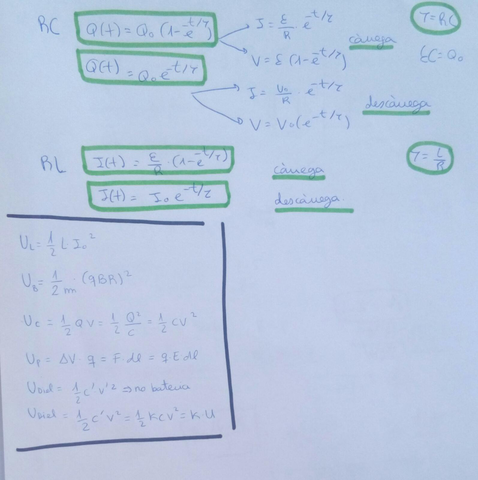 RC Q(t) = Q₀ (1-e^-t/τ) I = ε/R · e^-t/τ τ = RC
V = ε (1-e^-t/τ) càrrega εC = Q₀
Q(t) = Q₀ e^-t/τ
I = V₀/R · e^-t/τ descàrrega
V = V₀ (e^-t/τ)
RL I(t) = ε/R · (1-e^-t/τ) càrrega τ = L/R
I(t) = I₀ e^-t/τ descàrrega
U_L = 1/2 L I₀²
U_B = 1/2m · (qBR)²
U_C = 1/2 QV = 1/2 Q²/C = 1/2 CV²
U_P = ΔV · q = F · dl = q E dl
= 1/2 C' V'² ⇒ no bateria
= 1/2 C' V² = 1/2 K C V² = K · U